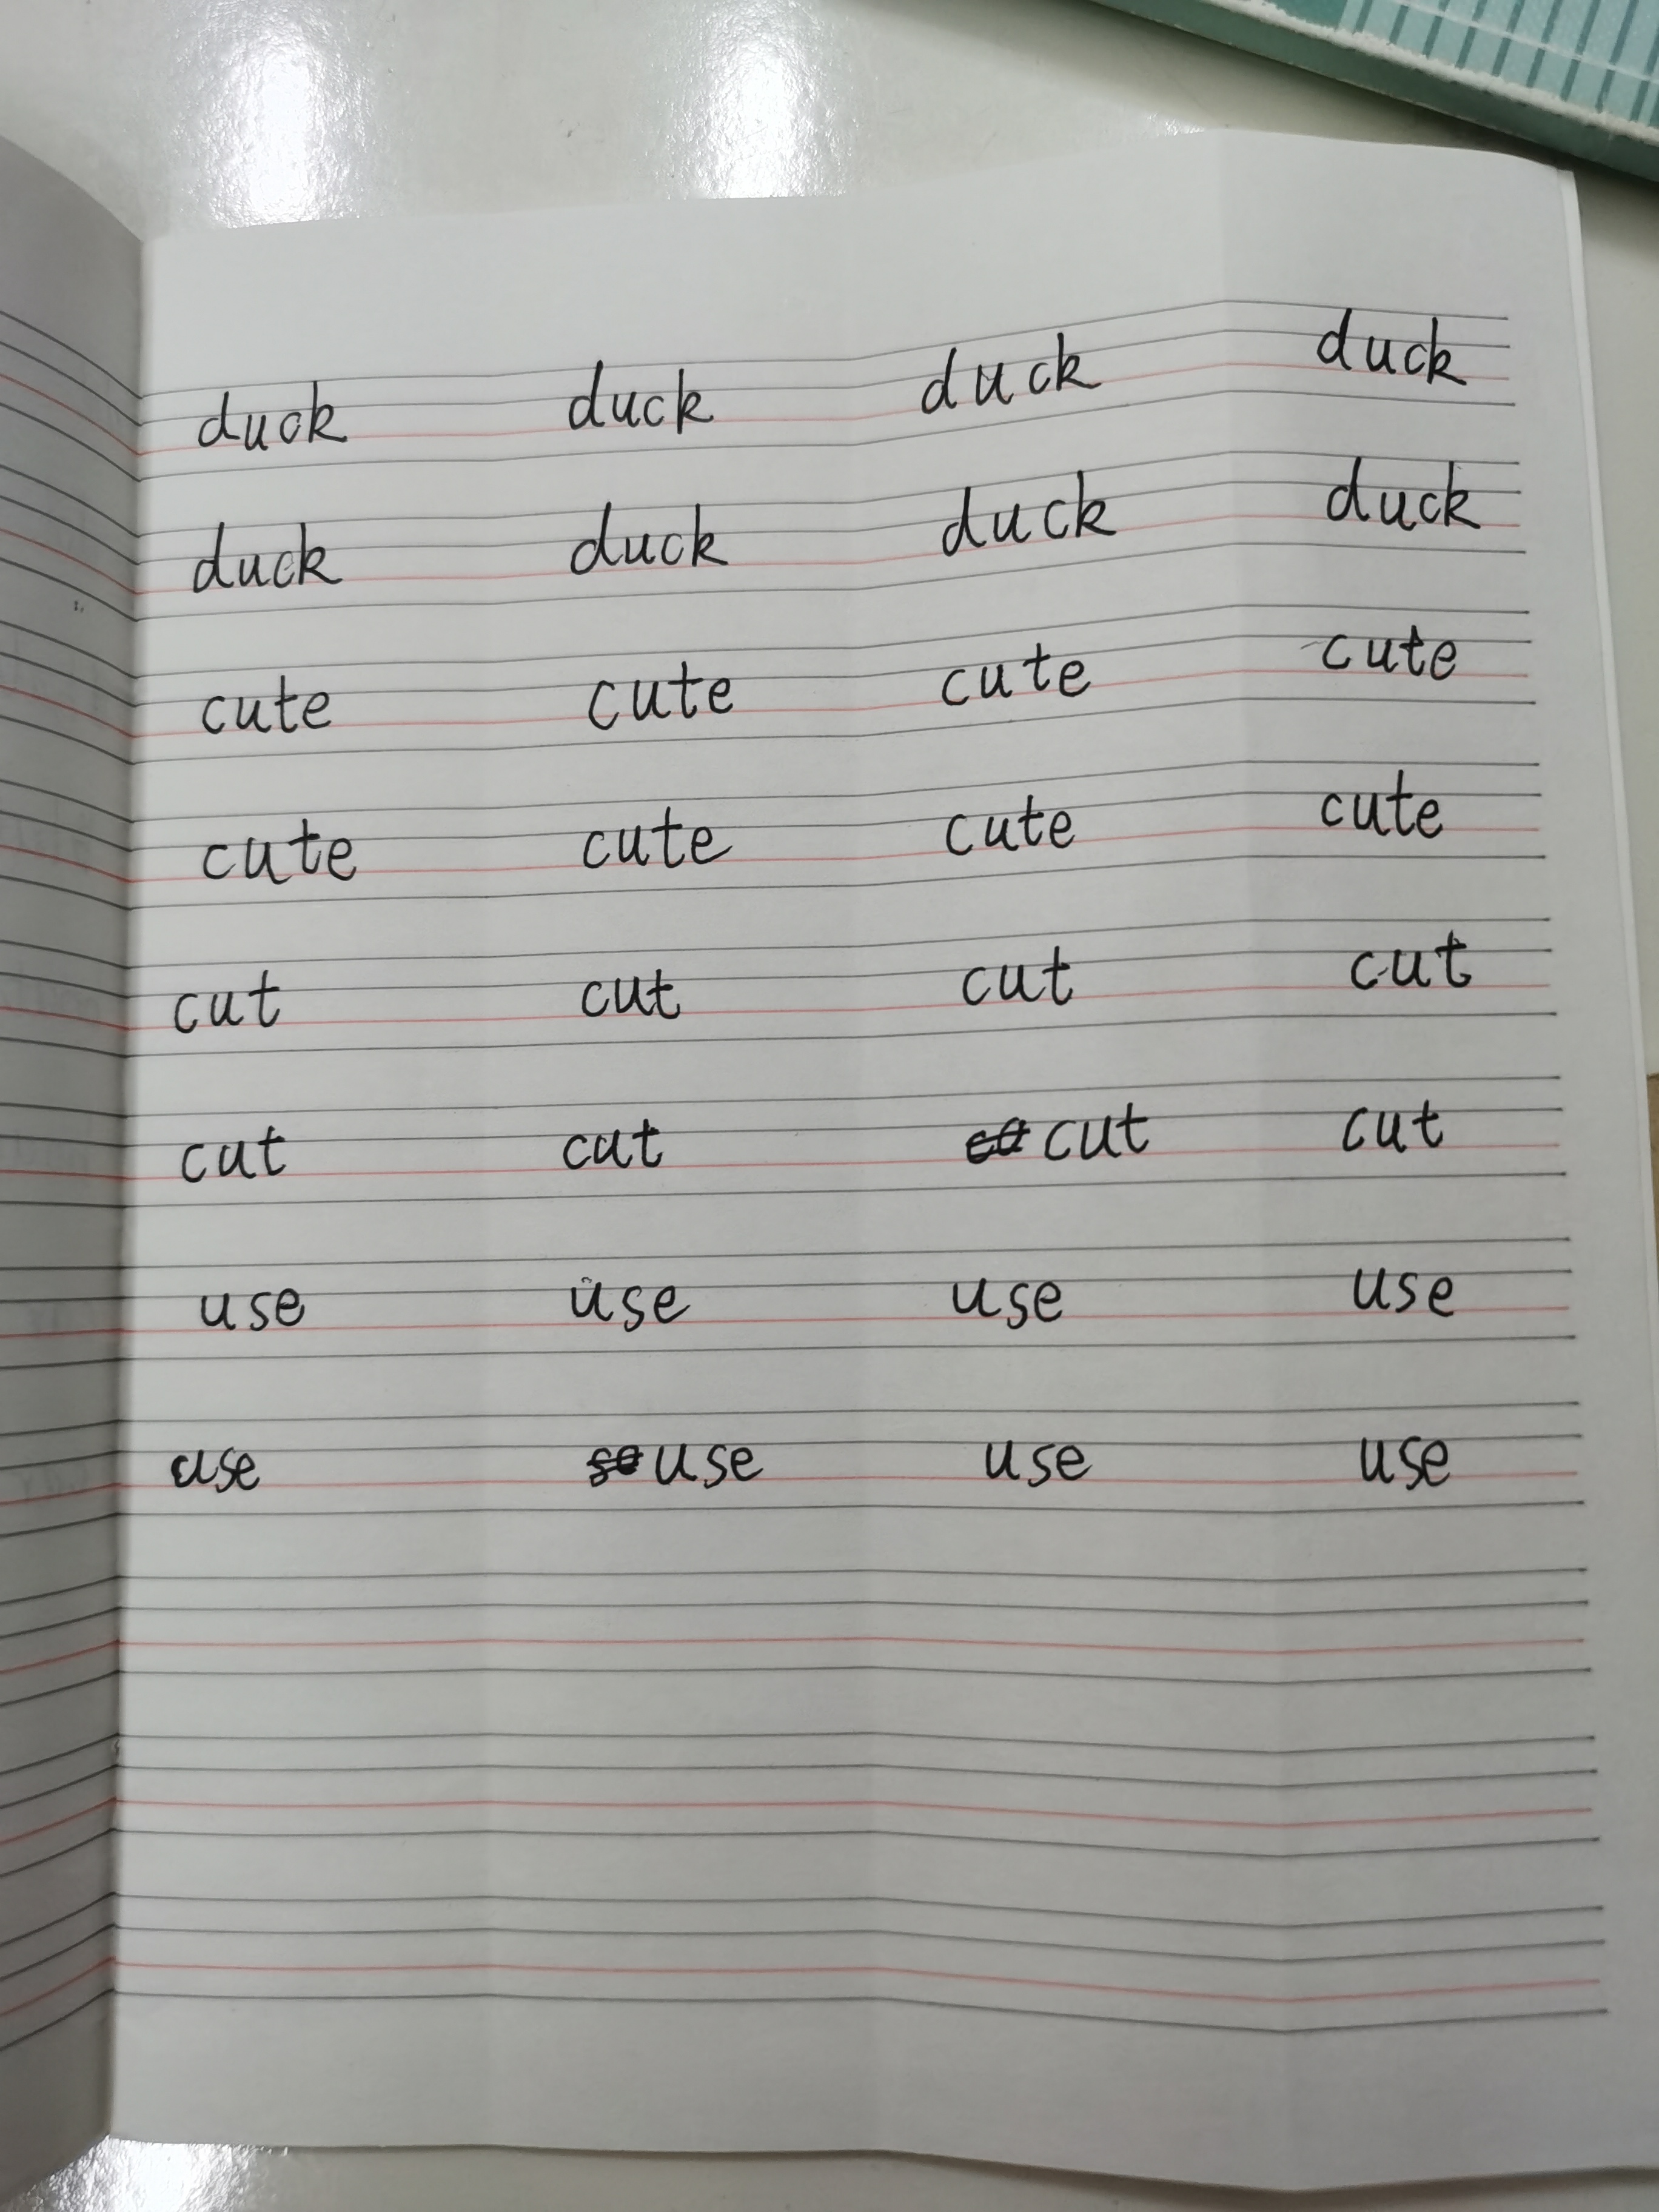 duck duck duck duck
duck duck duck duck
cute cute cute cute
cute cute cute cute
cut cut cut cut
cut cut cut cut
use use use use
use use use use